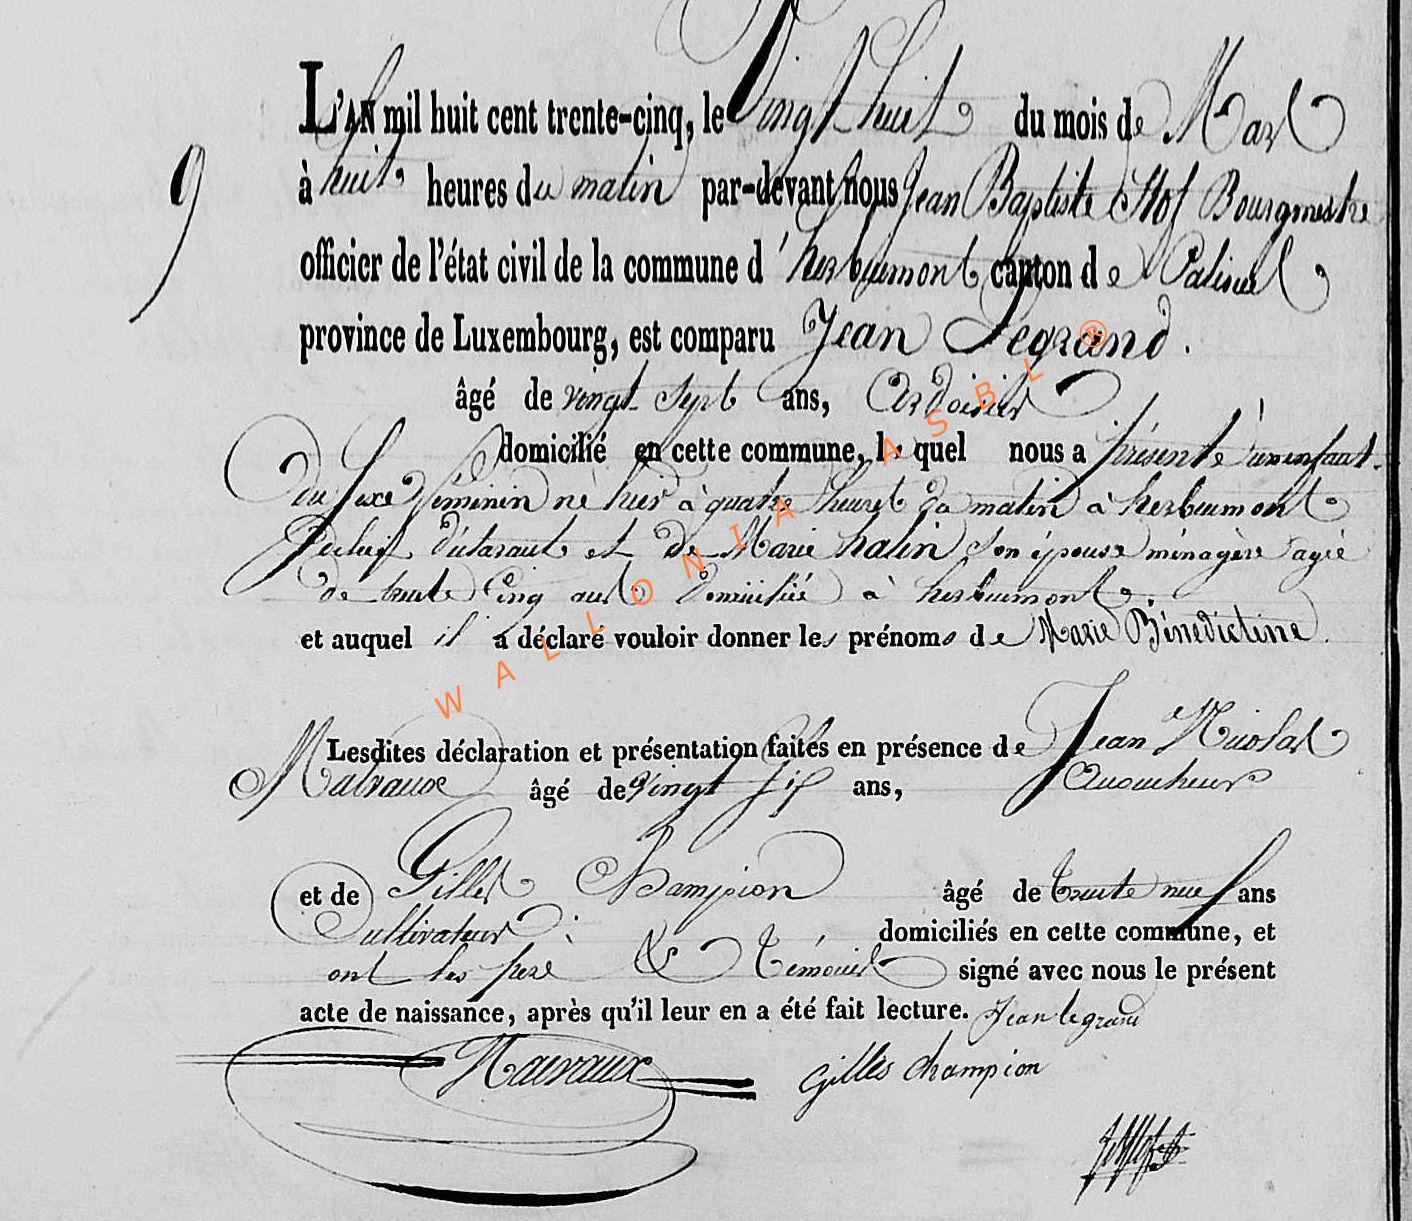 L'AN mil huit cent trente-cinq, le Vingt huit du mois de Mars
9
à huit heures du matin par-devant nous Jean Baptiste Bourgmestre
officier de l'état civil de la commune d'herbeumont canton de Paliseul
province de Luxembourg, est comparu Jean Legrand.
âgé de vingt sept ans, Ardoisier
domicilié en cette commune, lequel nous a présenté un enfant
du sexe féminin né hier à quatre heures du matin à herbeumont
de lui déclarant et de Marie halin son épouse ménagère agée
de trente cinq ans domiciliée à herbeumont
et auquel il a déclaré vouloir donner les prénoms de Marie Bénédictine.
Lesdites déclaration et présentation faites en présence de Jean Nicolas
âgé de vingt six ans, Accoucheur
et de Gilles Champion âgé de trente neuf ans
Cultivateur domiciliés en cette commune, et
ont les père & témoins signé avec nous le présent
acte de naissance, après qu'il leur en a été fait lecture. Jean legrand
gilles champion
WALLONIA ASBL ®